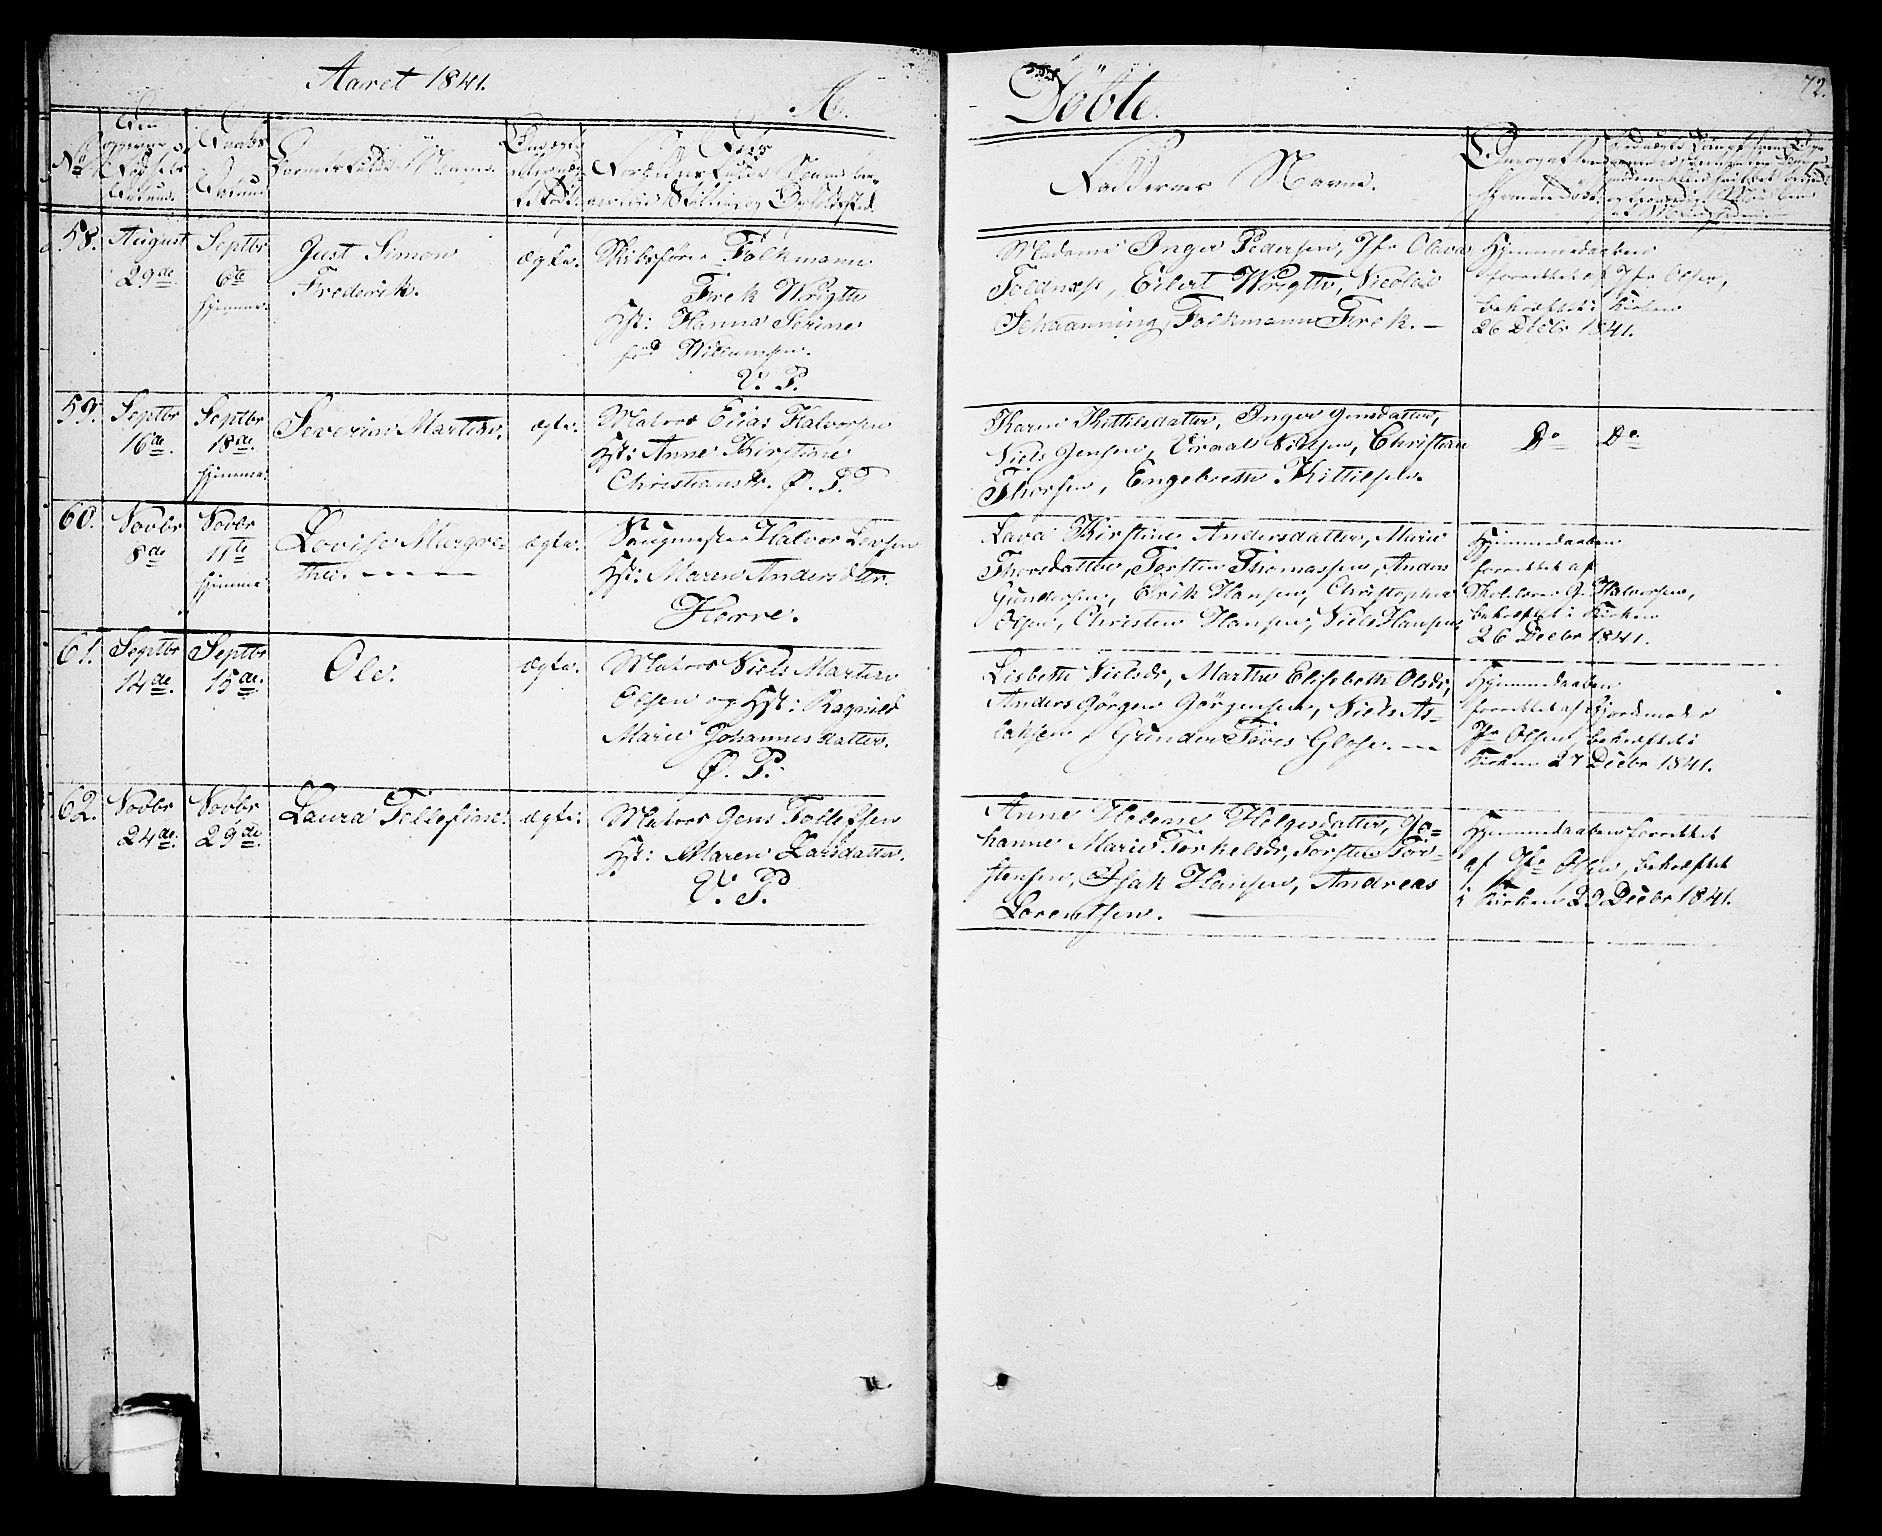 Aaret 1841.
A.
Döbte.
72.
No
Barnets fulde Navn.
Faddernes Navne.
58.
August
29de
Septbr
6te
hjemme.
Just Simon
Frederik.
ægte.
Skibsfører Folkmann
Firck Wrigth
Hst: Hanna Serine
fød Willumsen.
V. P.
Madame Inger Pedersen, Jfr Olava
Foldnæs, Eilert Wrigth, Nicolai
Schaanning, Folkmann Firck. —
Hjemmedaaben
forrettet af Jfr Olsen,
bekræftet i Kirken
26 Decbr 1841.
59.
Septbr
16de.
Septbr
18de.
hjemme.
Severin Martin.
ægte.
Matros Elias Halvorsen
Hst: Anne Kirstine
Christiansdr. Ø. P.
Karen Kittilsdatter, Inger Jensdatter,
Niels Jensen, Nielsen, Christian
Thorsen, Engebreth Kittilsen.
Do Do
60.
Novbr
8de
Novbr
11te
hjemme
Lovise Margre-
the. — — —
ægte.
Halvor
Hst: Maren Andersdtr.
Horre.
Lava Kirstine Andersdatter, Marie
Thorsdatter, Torsten Thomassen, Anders
Gundersen, Erik Hansen, Christopher
Olsen, Christen Hansen, Niels Hansen
Hjemmedaaben
forrettet af
Halvorsen,
bekræftet i Kirken
26 Decbr 1841.
61.
Septbr
14de.
Septbr
15de.
Ole.
ægte.
Matros Niels Martin
Olsen og Hst: Ragnild
Marie Johannesdatter.
Ø. P.
Lisbeth Nielsdr, Marthe Elisebeth Olsdr,
Anders Jørgen Jørgensen, Niels As-
laksen, Gunder Glose. — —
Hjemmedaaben
forrettet af Jordmoder
Jfr Olsen, bekræftet i
Kirken 27 Decbr 1841.
62.
Novbr
24de.
Novbr
29de.
Laura Tellefine.
ægte.
Matros Jens Tollefsen
Hst: Maren Larsdatter.
V. P.
Anne Helene Helgesdatter, Jo-
hanne Marie Terkelsdr, Torsten Tor-
stensen, Isak Hansen, Andreas
Lorentsen. —
Hjemmedaaben forrettet
af Jfr Olsen, bekræftet
i Kirken 29 Decbr 1841.